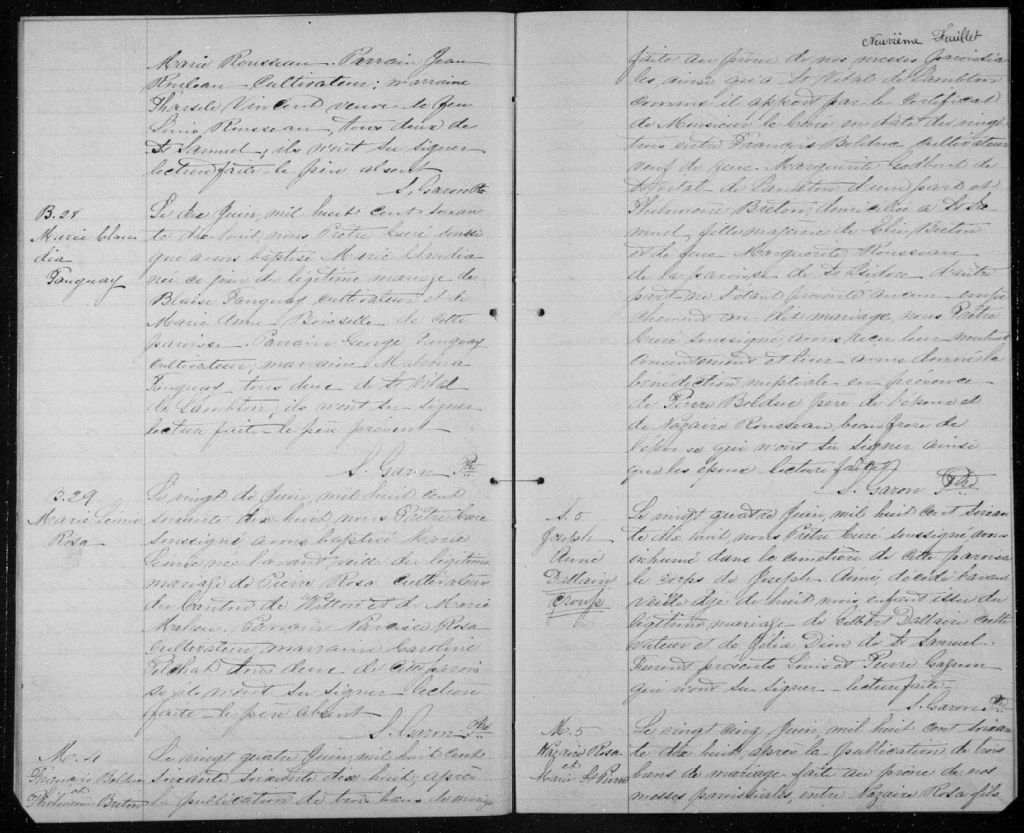 Marie Rousseau. Parrain Jean
Rouleau Cultivateur; marraine
Vincent veuve de feu
Louis Rousseau, tous deux de
St Samuel, ils n'ont su signer
lecture faite le père absent
S. Garon Ptre
B. 28
Marie Clau
dia
Tanguay
Le dix Juin, mil huit cent soixan
te dix huit, nous Prêtre Curé soussi
gné avons baptisé Marie Claudia
née ce jour du légitime mariage de
Blaise Tanguay cultivateur et de
Marie Anne Boisselle de cette
paroisse. Parrain George Tanguay
Cultivateur, marraine Malvina
Tanguay tous deux de St Vital
de Lambton, ils n'ont su signer
lecture faite le père présent
S. Garon Ptre
B. 29
Marie
Rosa
Le vingt de Juin, mil huit cent
soixante dix huit nous Prêtre Curé
soussigné avons baptisé Marie
née l'avant veille du légitime
mariage de Pierre Rosa Cultivateur
du Canton de Witton et de Marie
Parrain Narcisse Rosa
Cultivateur, marraine Caroline
tous deux de cette parois
se ils n'ont su signer lecture
faite le père absent
S. Garon Ptre
M. 4
François Bolduc
et
Philomène Breton
Le vingt quatre Juin, mil huit cent
soixante dix huit, après
la publication de trois bans de mariage
Neuvième Feuillet
faite au prône de nos messes paroissia
les, ainsi qu'à St Vital de Lambton
comme il appert par le certificat
de Monsieur le Curé en date du vingt
trois entre François Bolduc, cultivateur
veuf de feue Marguerite Godbout de
St Vital de Lambton d'une part et
Philomène Breton, domiciliée à St Sa
muel, fille majeure de Elie Breton
et de feue Marguerite Rousseau
de la paroisse de St Isidore d'autre
part ne s'étant présenté aucun empê
chement au dit mariage, nous Prêtre
Curé soussigné, avons reçu leur mutuel
consentement et leur avons donné la
bénédiction nuptiale en présence
de Pierre Bolduc père de l'époux et
de Nazaire Rousseau, beau frère de
qui n'ont su signer ainsi
que les époux. Lecture faite
S. Garon Ptre
S. 5
Joseph
Aimé
Dallaire
Croup
Le vingt quatre Juin, mil huit cent soixan
te dix huit, nous Prêtre Curé soussigné avons
inhumé dans le cimetière de cette paroisse
le corps de Joseph Aimé, décédé l'avant
veille âgé de huit mois enfant issu du
légitime mariage de Gilbert Dallaire Culti
vateur et de Délia Dion de St Samuel.
Furent présents Louis et Pierre Gagnon
qui n'ont su signer lecture faite
S. Garon Ptre
M. 5
Nazaire Rosa
et
Marie St Pierre
Le vingt cinq Juin, mil huit cent soixan
te dix huit après la publication de trois
bans de mariage faite au prône de nos
messes paroissiales, entre Nazaire Rosa fils